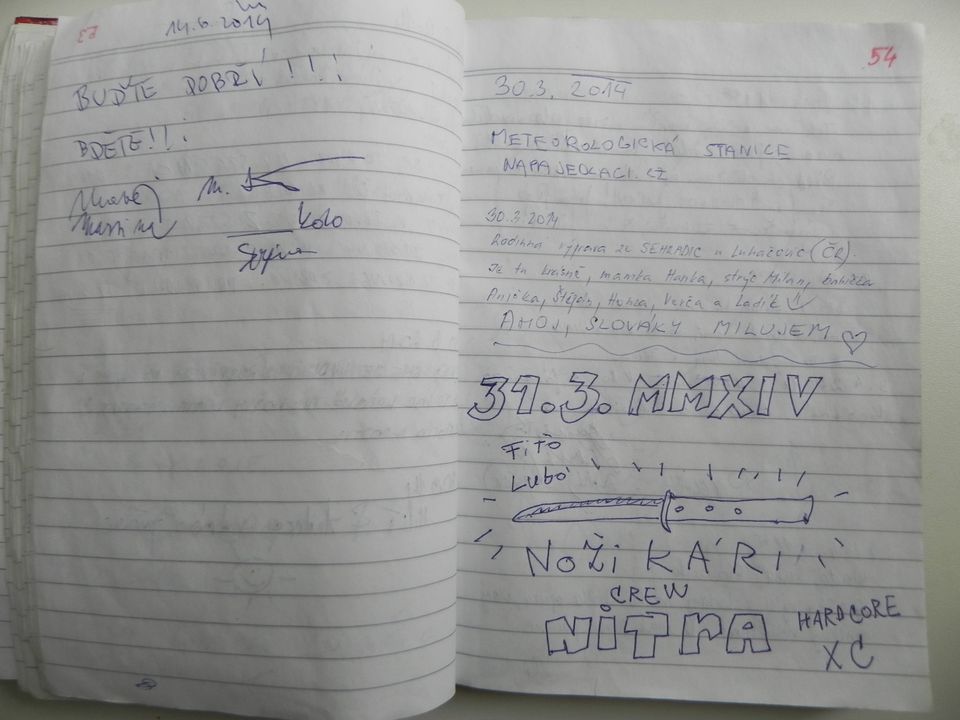 14.6.2014
BUĎTE DOBŘÍ!!!
BDĚTE!!!
M.
Kolo
54
30.3. 2014
METEOROLOGICKÁ STANICE
NAPAJEDLACI.CZ
30.3.2014
Rodinná výprava ze SEHRADIC u Luhačovic (ČR).
Je tu krásně, mamka Hanka, strýc Milan, babička
Anička, Štěpán, Honza, Verča a Ladík
AHOJ, SLOVÁKY MILUJEM
31.3. MMXIV
FIŤO
LUBO
NOŽIKÁRI
CREW
NITRA
HARDCORE
XC